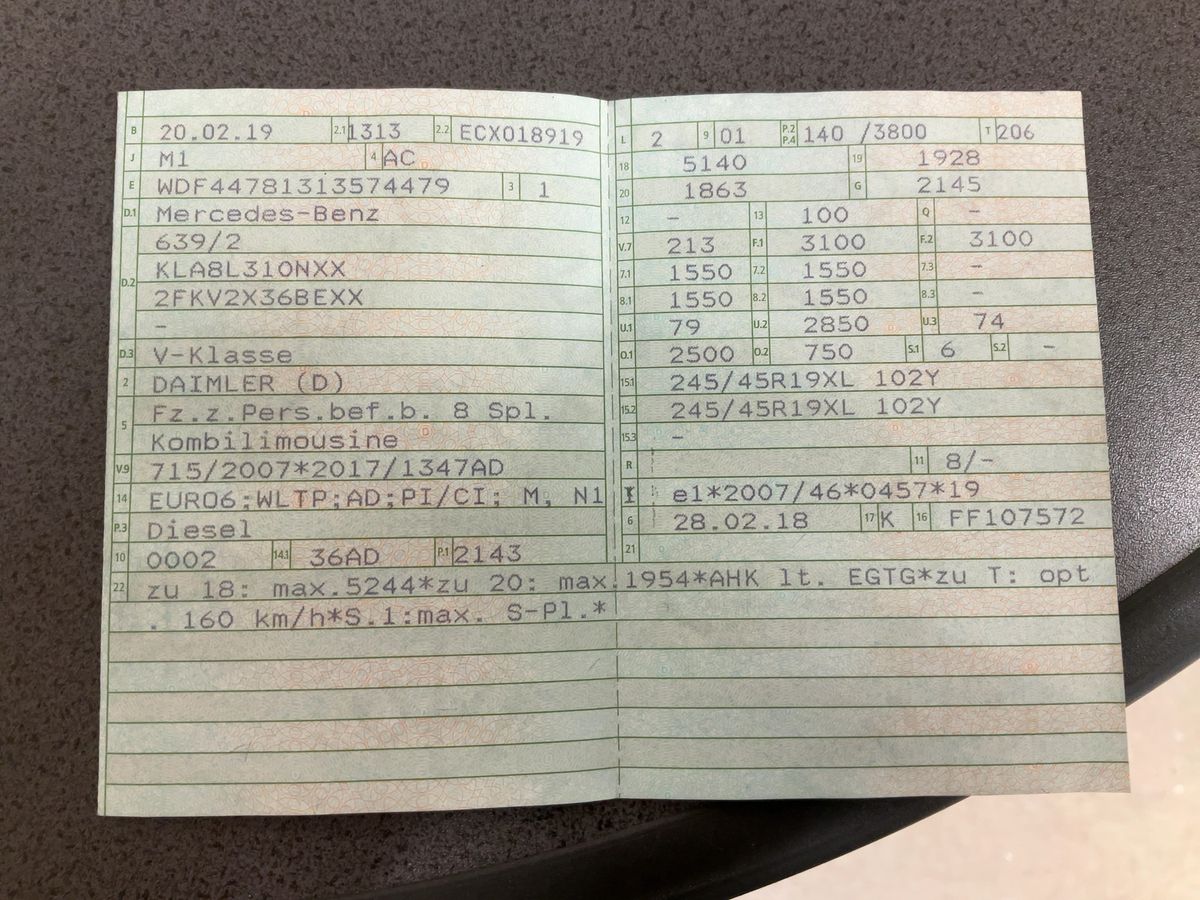 B 20.02.19 2.1 1313 2.2 ECX018919
J M1 4 AC
E WDF44781313574479 3 1
D.1 Mercedes-Benz
639/2
D.2 KLA8L310NXX
2FKV2X36BEXX
–
D.3 V-Klasse
2 DAIMLER (D)
5 Fz.z.Pers.bef.b. 8 Spl.
Kombilimousine
V.9 715/2007*2017/1347AD
14 EURO6;WLTP;AD;PI/CI; M, N1
P.3 Diesel
10 0002 14.1 36AD P.1 2143
L 2 9 01 P.2 P.4 140 /3800 T 206
18 5140 19 1928
20 1863 G 2145
12 – 13 100 Q –
V.7 213 F.1 3100 F.2 3100
7.1 1550 7.2 1550 7.3 –
8.1 1550 8.2 1550 8.3 –
U.1 79 U.2 2850 U.3 74
O.1 2500 O.2 750 S.1 6 S.2 –
15.1 245/45R19XL 102Y
15.2 245/45R19XL 102Y
15.3 –
R 11 8/–
K e1*2007/46*0457*19
6 28.02.18 17 K 16 FF107572
21
22 zu 18: max.5244*zu 20: max.1954*AHK lt. EGTG*zu T: opt
. 160 km/h*S.1:max. S-Pl.*